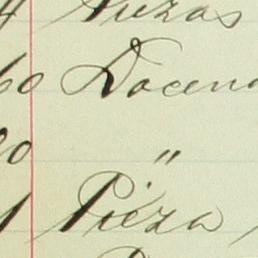 Piezas
60 Docena
0 "
1 Pieza